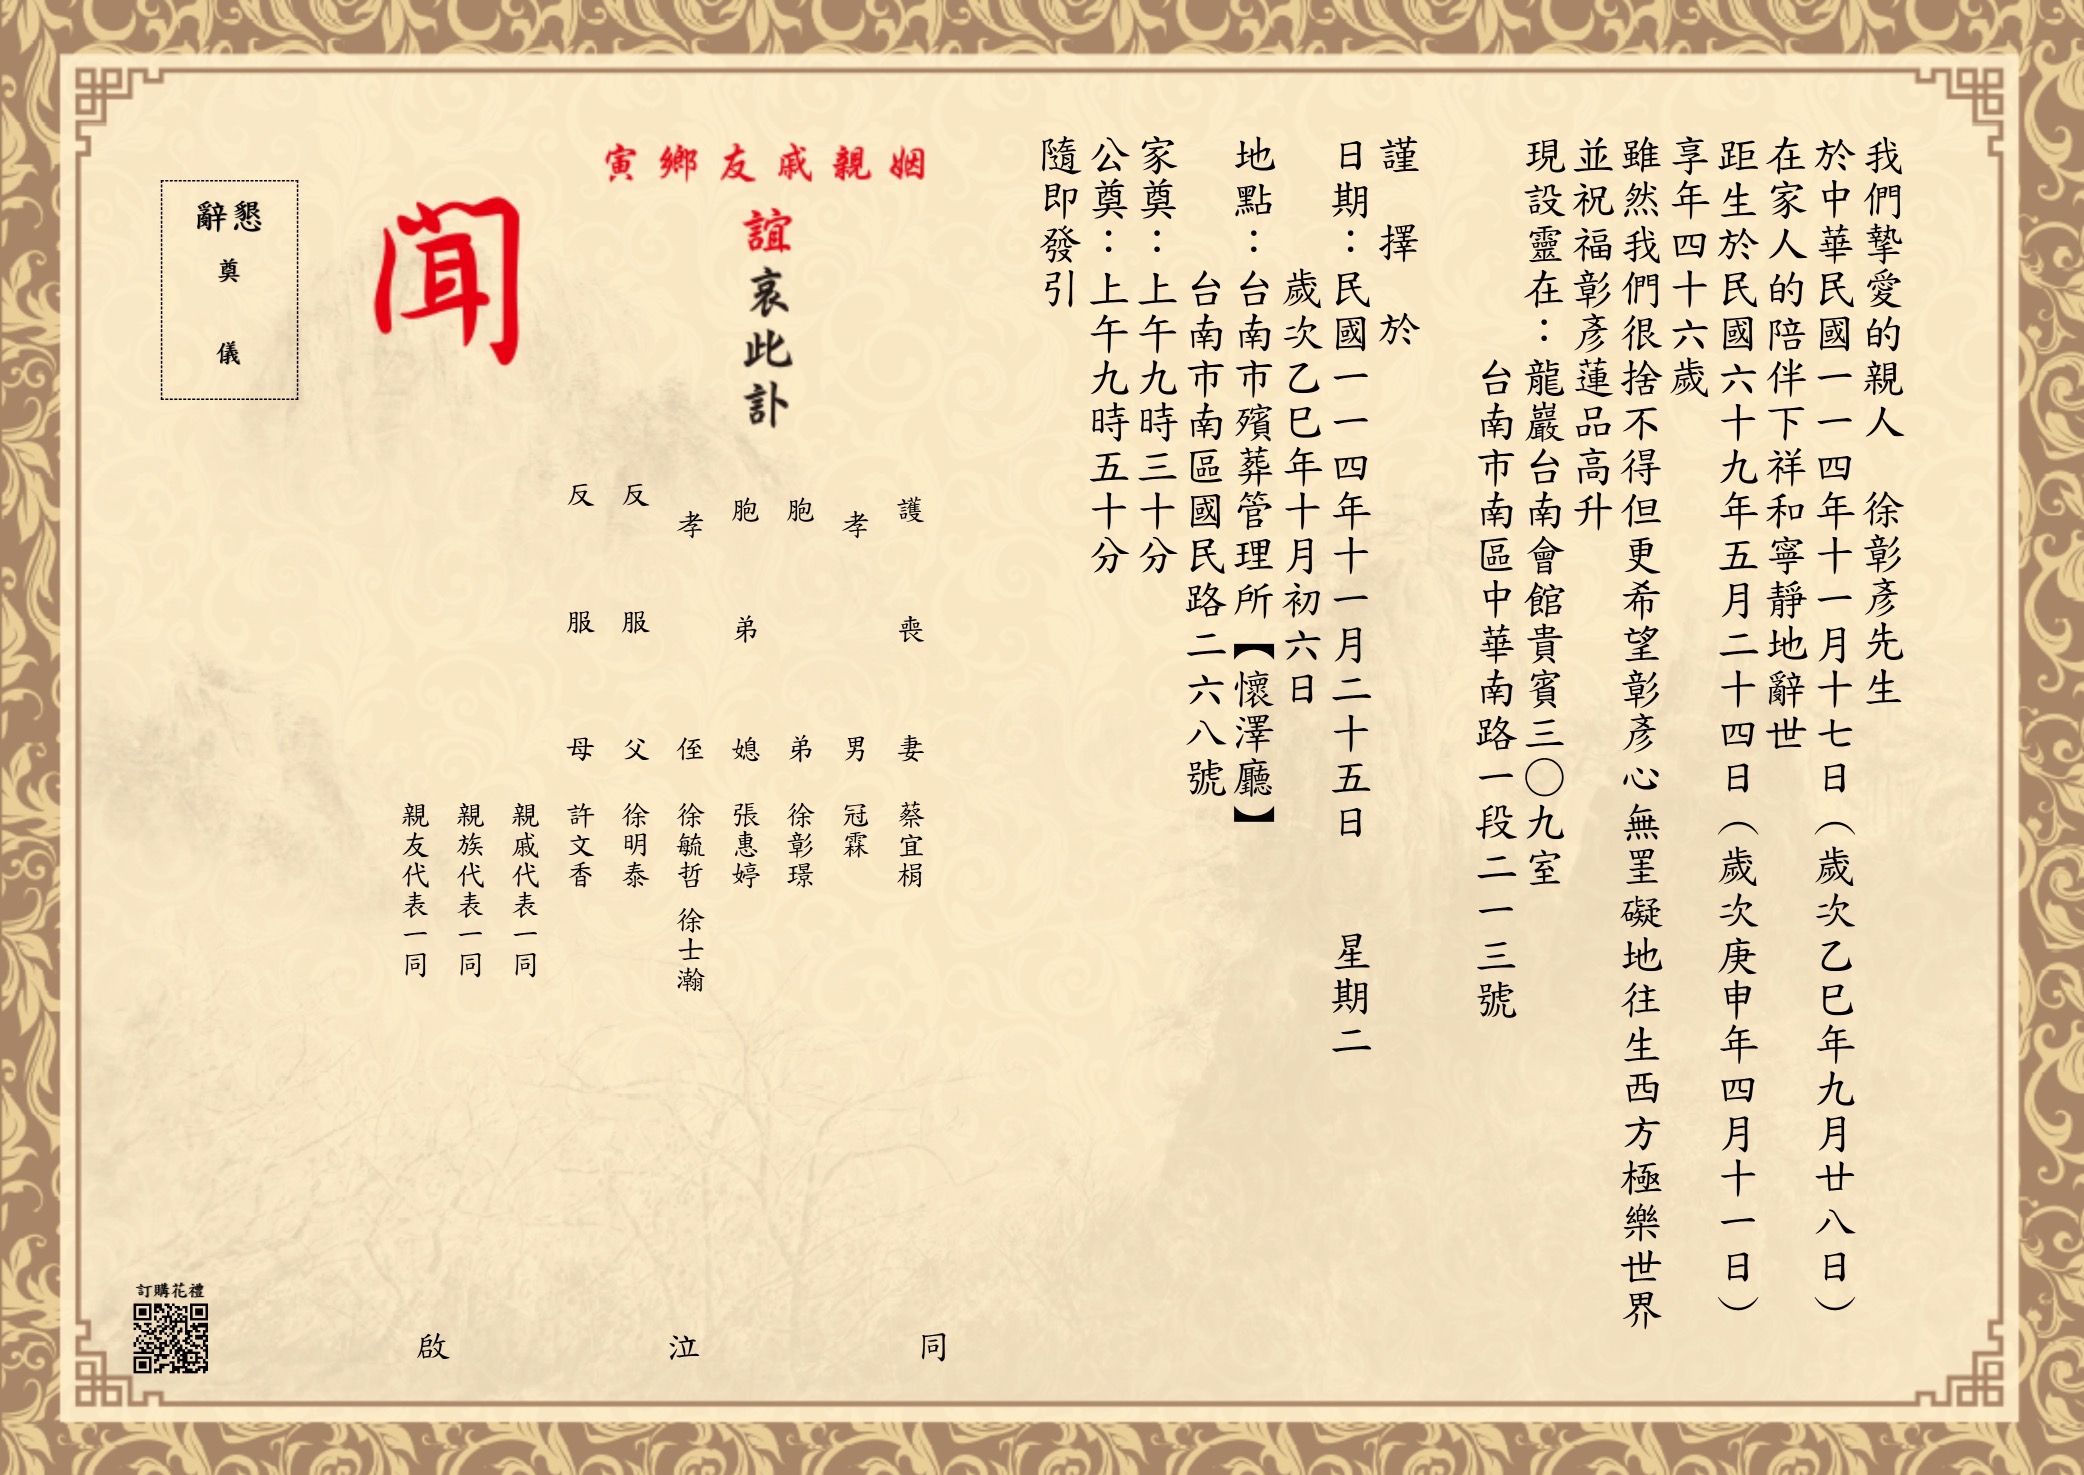 我們摯愛的親人　徐彰彥先生
於中華民國一一四年十一月十七日（歲次乙巳年九月廿八日）
在家人的陪伴下祥和寧靜地辭世
距生於民國六十九年五月二十四日（歲次庚申年四月十一日）
享年四十六歲
雖然我們很捨不得但更希望彰彥心無罣礙地往生西方極樂世界
並祝福彰彥蓮品高升
現設靈在：龍巖台南會館貴賓三〇九室
台南市南區中華南路一段二一三號
謹擇於
日期：民國一一四年十一月二十五日　星期二
歲次乙巳年十月初六日
地點：台南市殯葬管理所【懷澤廳】
台南市南區國民路二六八號
家奠：上午九時三十分
公奠：上午九時五十分
隨即發引
姻親戚友鄉寅
誼哀此訃
聞
護喪妻　蔡宜梋
孝男　冠霖
胞弟　徐彰璟
胞弟媳　張惠婷
孝侄　徐毓哲　徐士瀚
反服父　徐明泰
反服母　許文香
親戚代表一同
親族代表一同
親友代表一同
同泣啟
懇辭
奠儀
訂購花禮